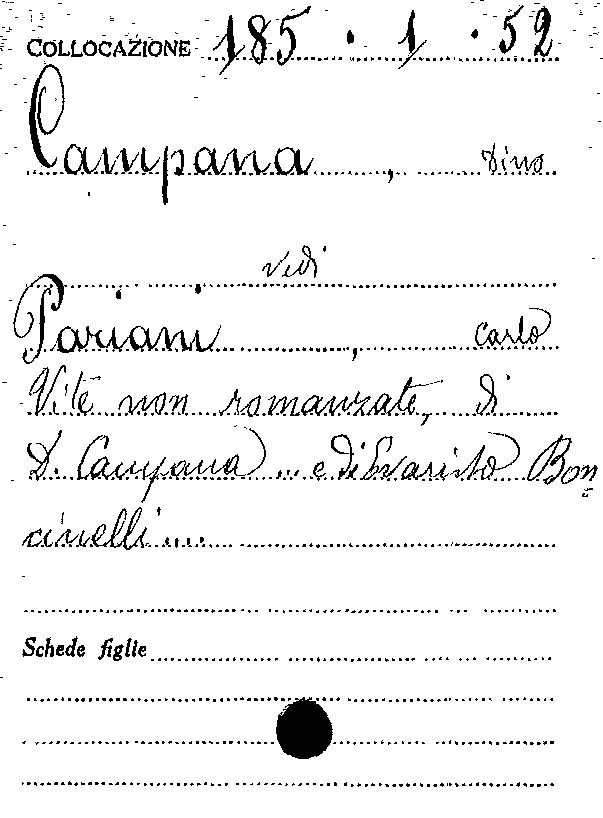 COLLOCAZIONE 185 · 1 · 52
Campana , Dino
vedi
Pariani , Carlo
Vite non romanzate, di
D. Campana ... e di Evaristo Bon
cinelli ....
Schede figlie